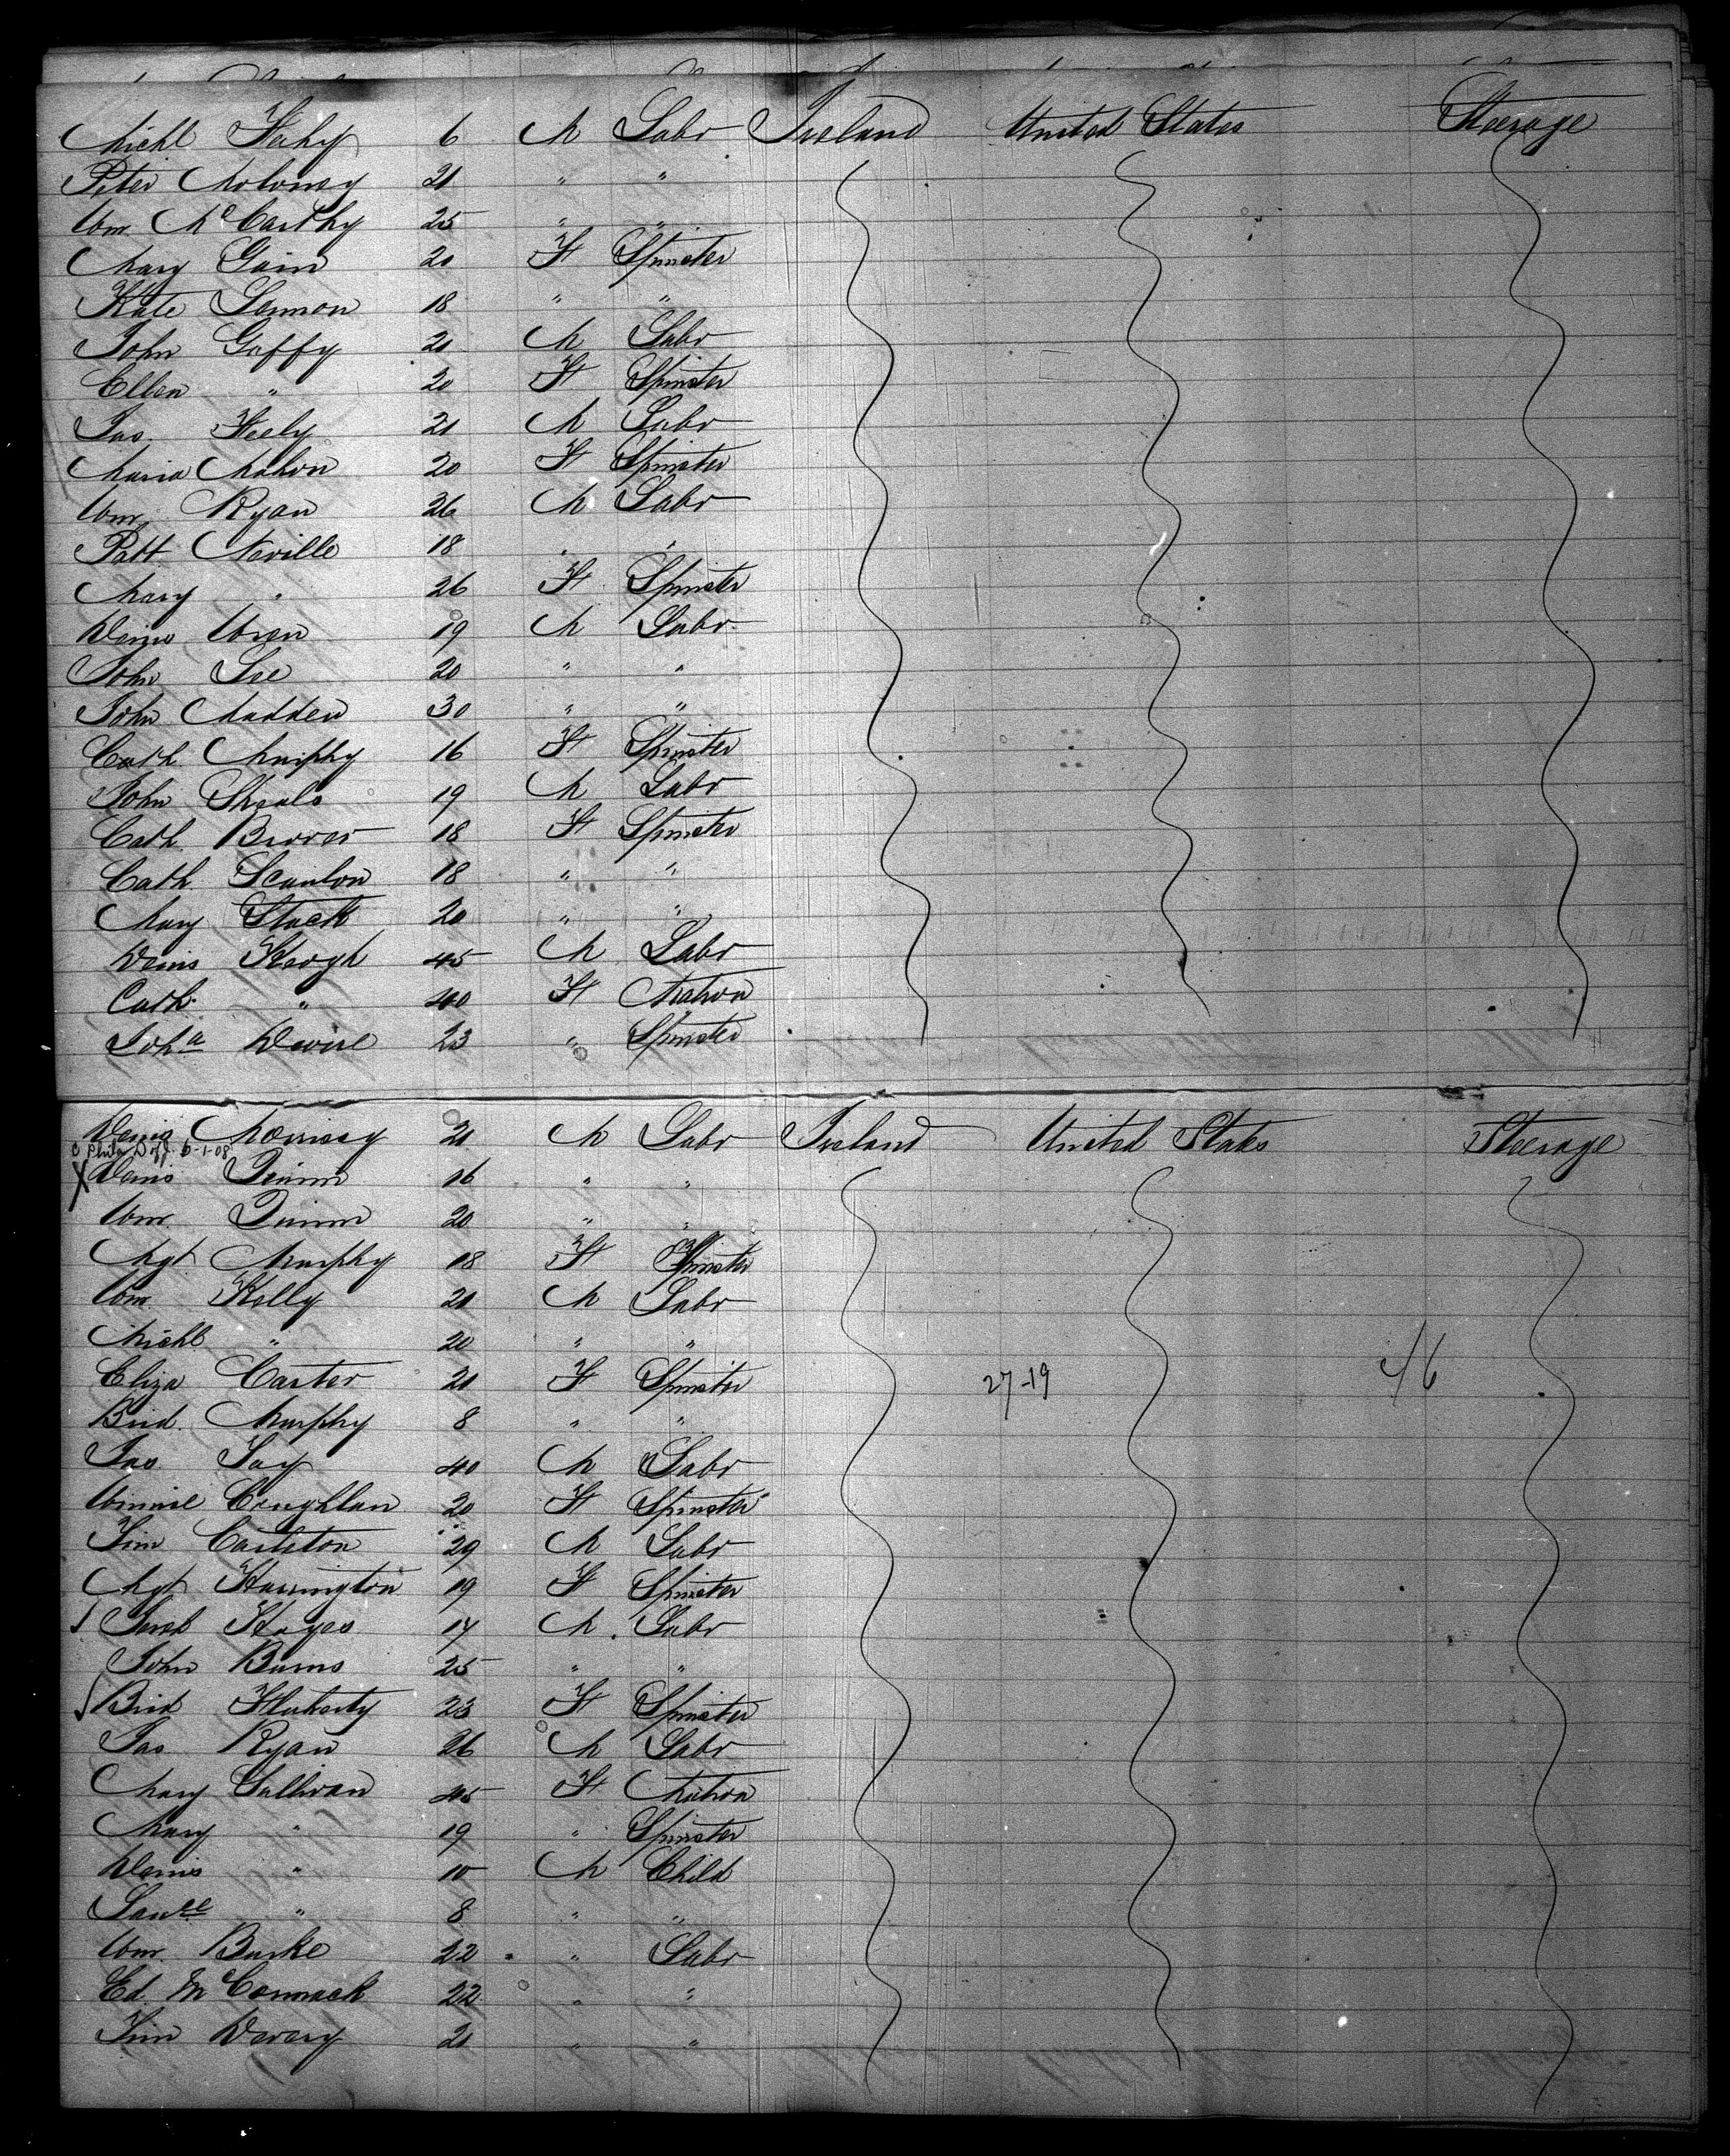 Michl Fahy 6 M Labr Ireland United States Steerage
Peter Moloney 21 " "
Wm McCarthy 25 " "
Mary Gain 20 F Spinster
Kate Lennon 18 " "
John Gaffy 21 M Labr
Ellen " 20 F Spinster
Jas. Feely 21 M Labr
Maria Mahon 20 F Spinster
Wm. Ryan 26 M Labr
Patt Neville 18 " "
Mary " 26 F Spinster
Denis Wren 19 M Labr.
John Lee 20 " "
John Madden 30 " "
Cath. Murphy 16 F Spinster
John Sheals 19 M Labr
Cath. 18 F Spinster
Cath Scanlon 18 " "
Mary Stack 20 " "
Denis Keogh 45 M Labr
Cath. " 40 F Matron
Joha Devine 23 " Spinster
Denis Morrissy 21 M Labr Ireland United States Steerage
C Phila 6-1-08
X Denis Quinn 16 " "
Wm. Quinn 20 " "
Mgt Murphy 18 F Spinster
Wm. Kelly 21 M Labr
Michl " 20 " "
Eliza Carter 21 F Spinster 27-19
Brid. Murphy 8 " "
Jas. Fay 40 M Labr
Winnie Coughlan 20 F Spinster
Tim Carleton 29 M Labr
Mgt Harrington 19 F Spinster
Hayes 17 M. Labr
John Burns 25 " "
Brid Flaherty 23 F Spinster
Jas Ryan 26 M Labr
Mary Sullivan 45 F Matron
Mary " 19 " Spinster
Denis " 10 M Child
Lauce " 8 " "
Wm. Burke 22 " Labr
Ed. McCormack 22 " "
Tim Devery 21 " "